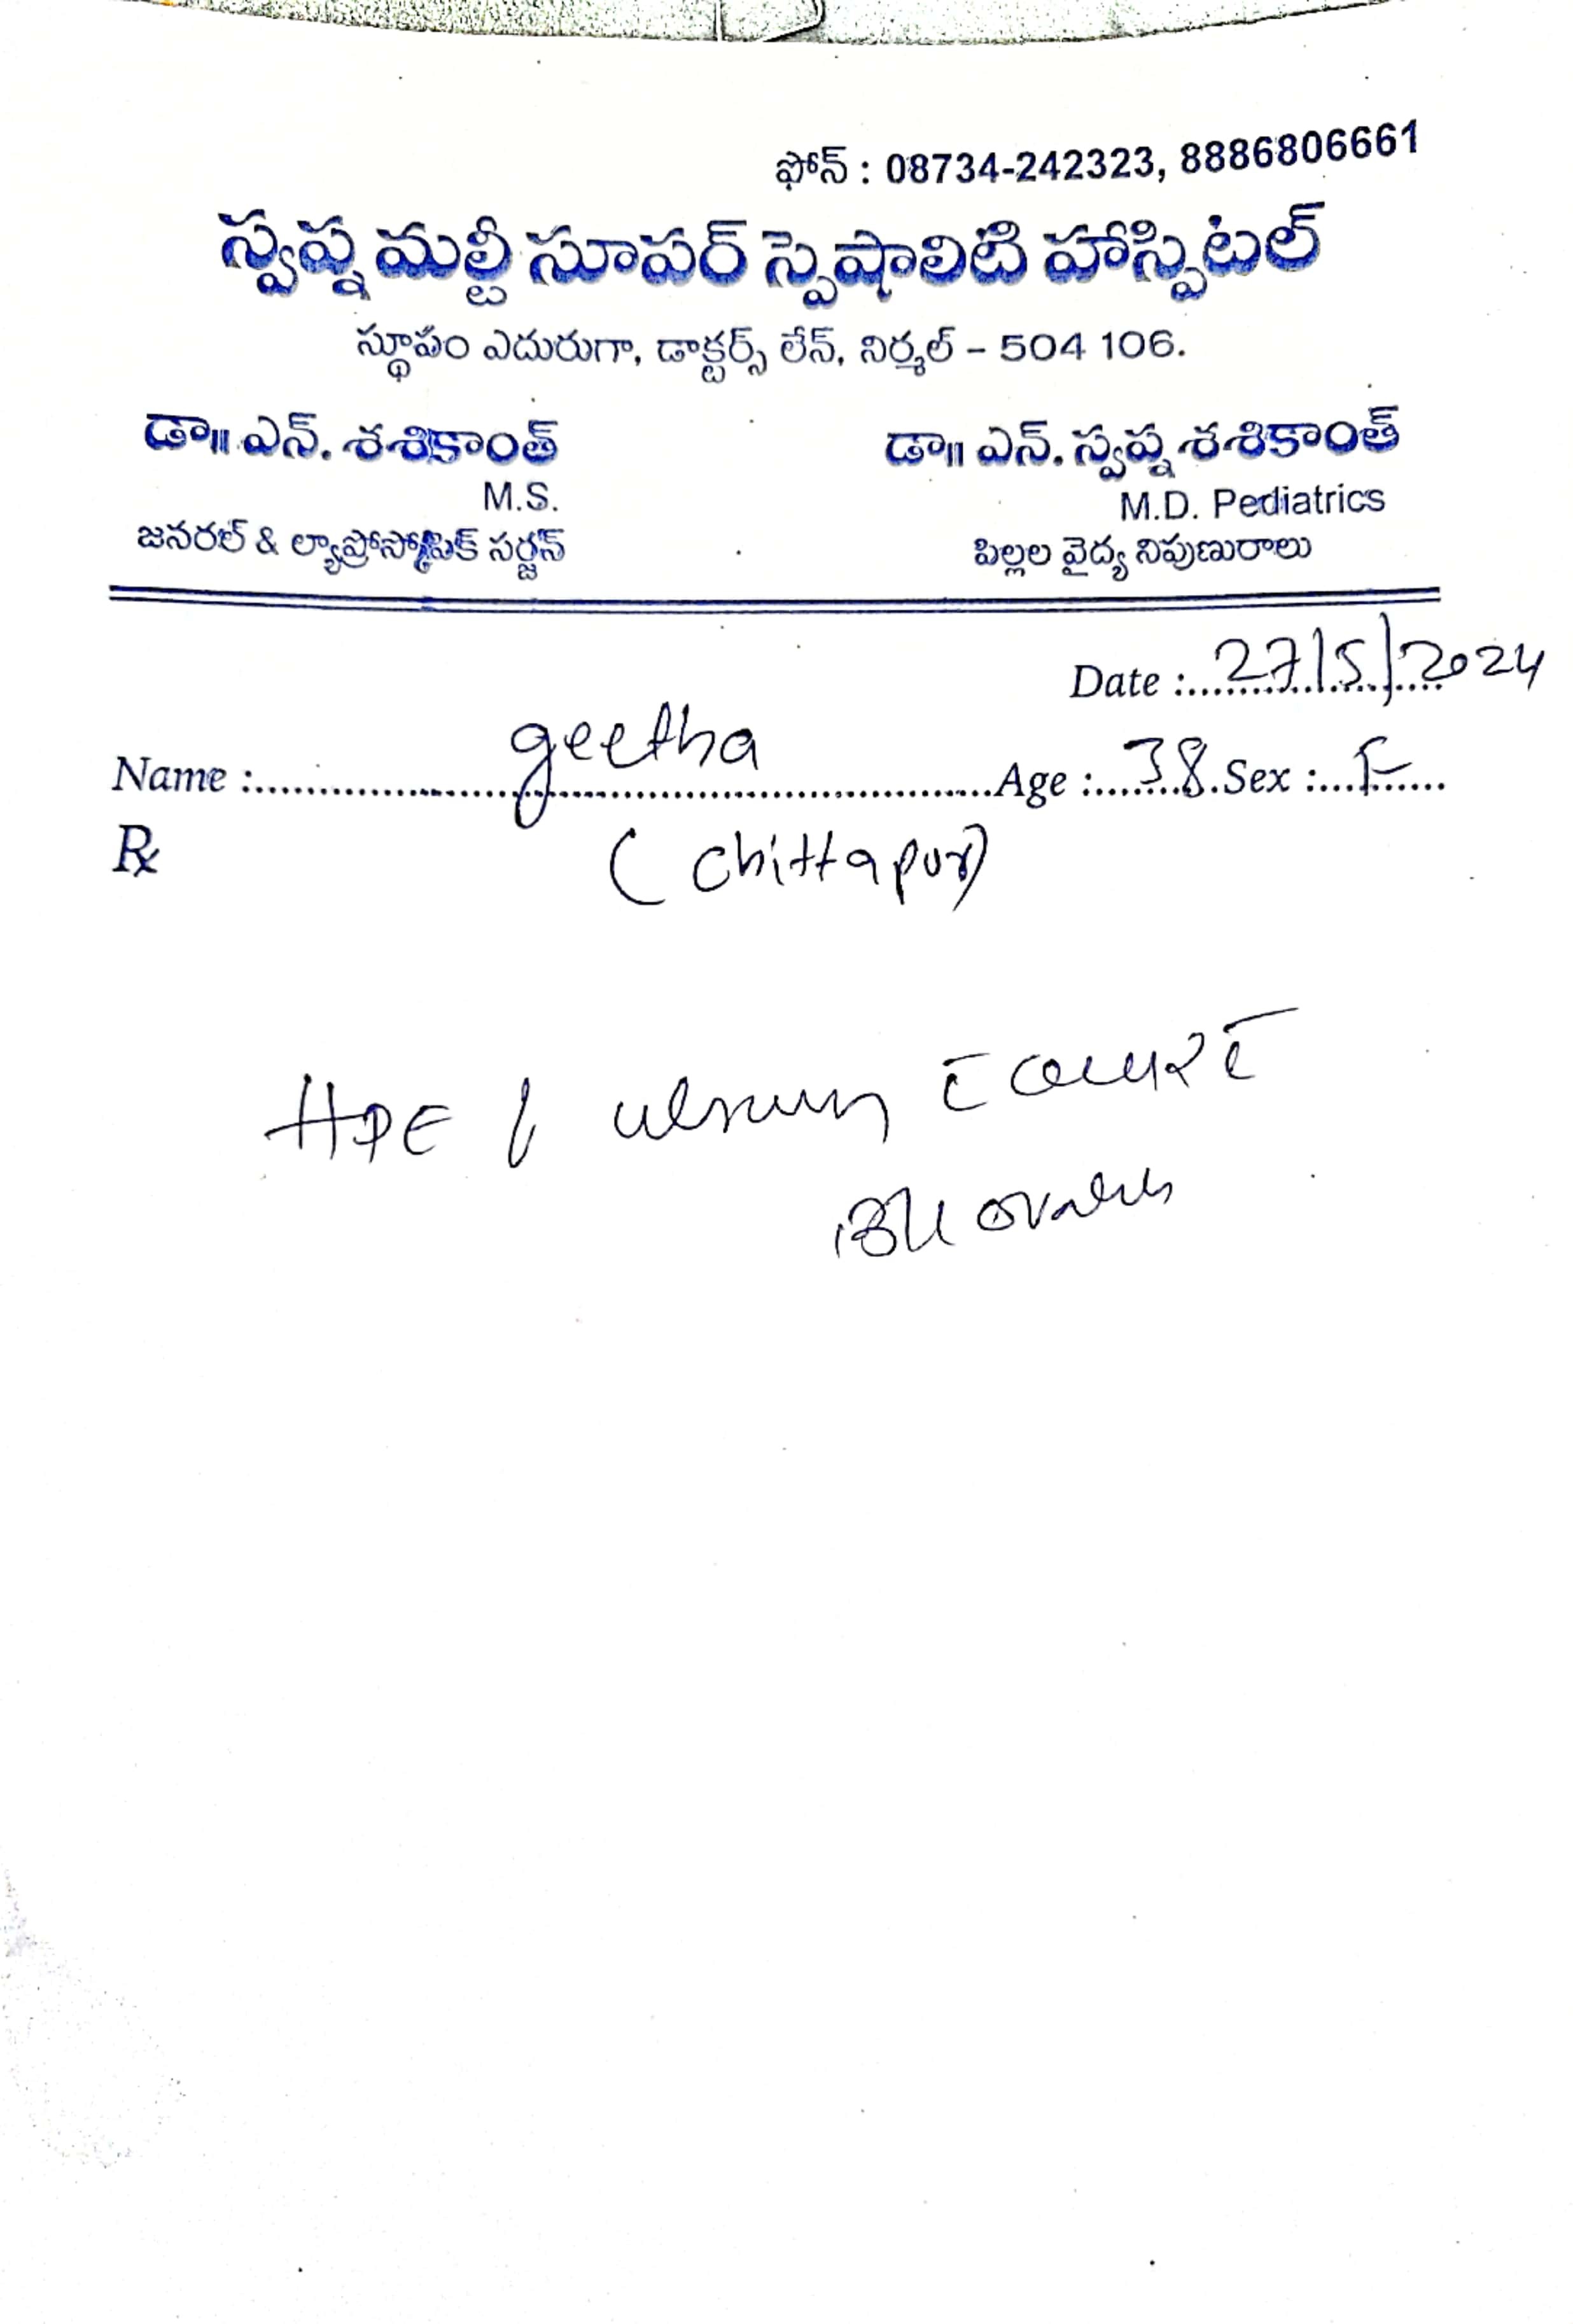 ఫోన్ : 08734-242323, 8886806661
స్వప్న మల్టీ సూపర్ స్పెషాలిటి హాస్పిటల్
స్థూపం ఎదురుగా, డాక్టర్స్ లేన్, నిర్మల్ - 504 106.
డా॥ ఎన్. శశికాంత్ డా॥ ఎన్. స్వప్న శశికాంత్
M.S. M.D. Pediatrics
జనరల్ & ల్యాప్రోస్కోపిక్ సర్జన్ పిల్లల వైద్య నిపుణురాలు
Date : 27/5/2024
Name : geetha Age : 38 Sex : F
Rx (Chittapur)
HPE